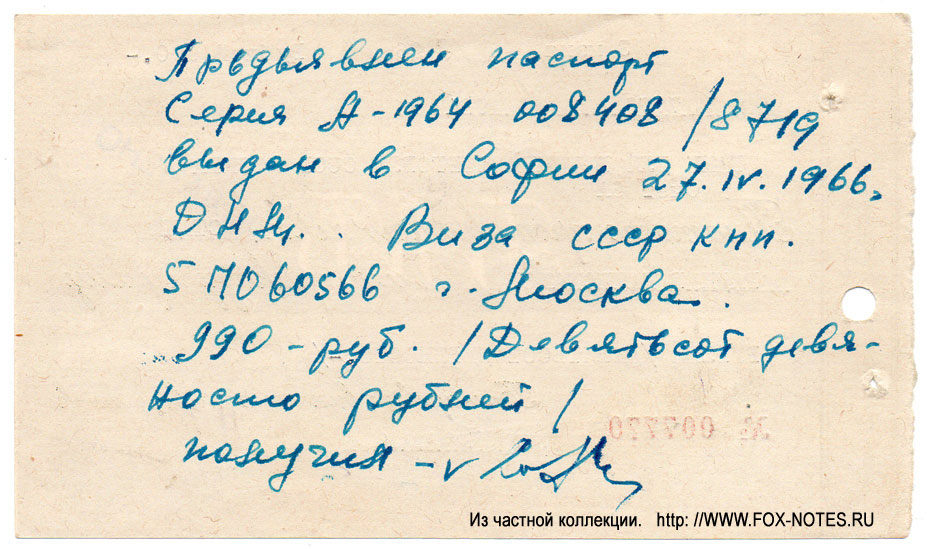 Предъявлен паспорт
Серия А-1964 008408 /8719
выдан в Софии 27.IV.1966.
Виза СССР КПП.
5М060566 г. Москва.
990 - руб. /Девятьсот девя-
носто рублей/
№ 007770
получил - v
Из частной коллекции. http: //WWW.FOX-NOTES.RU